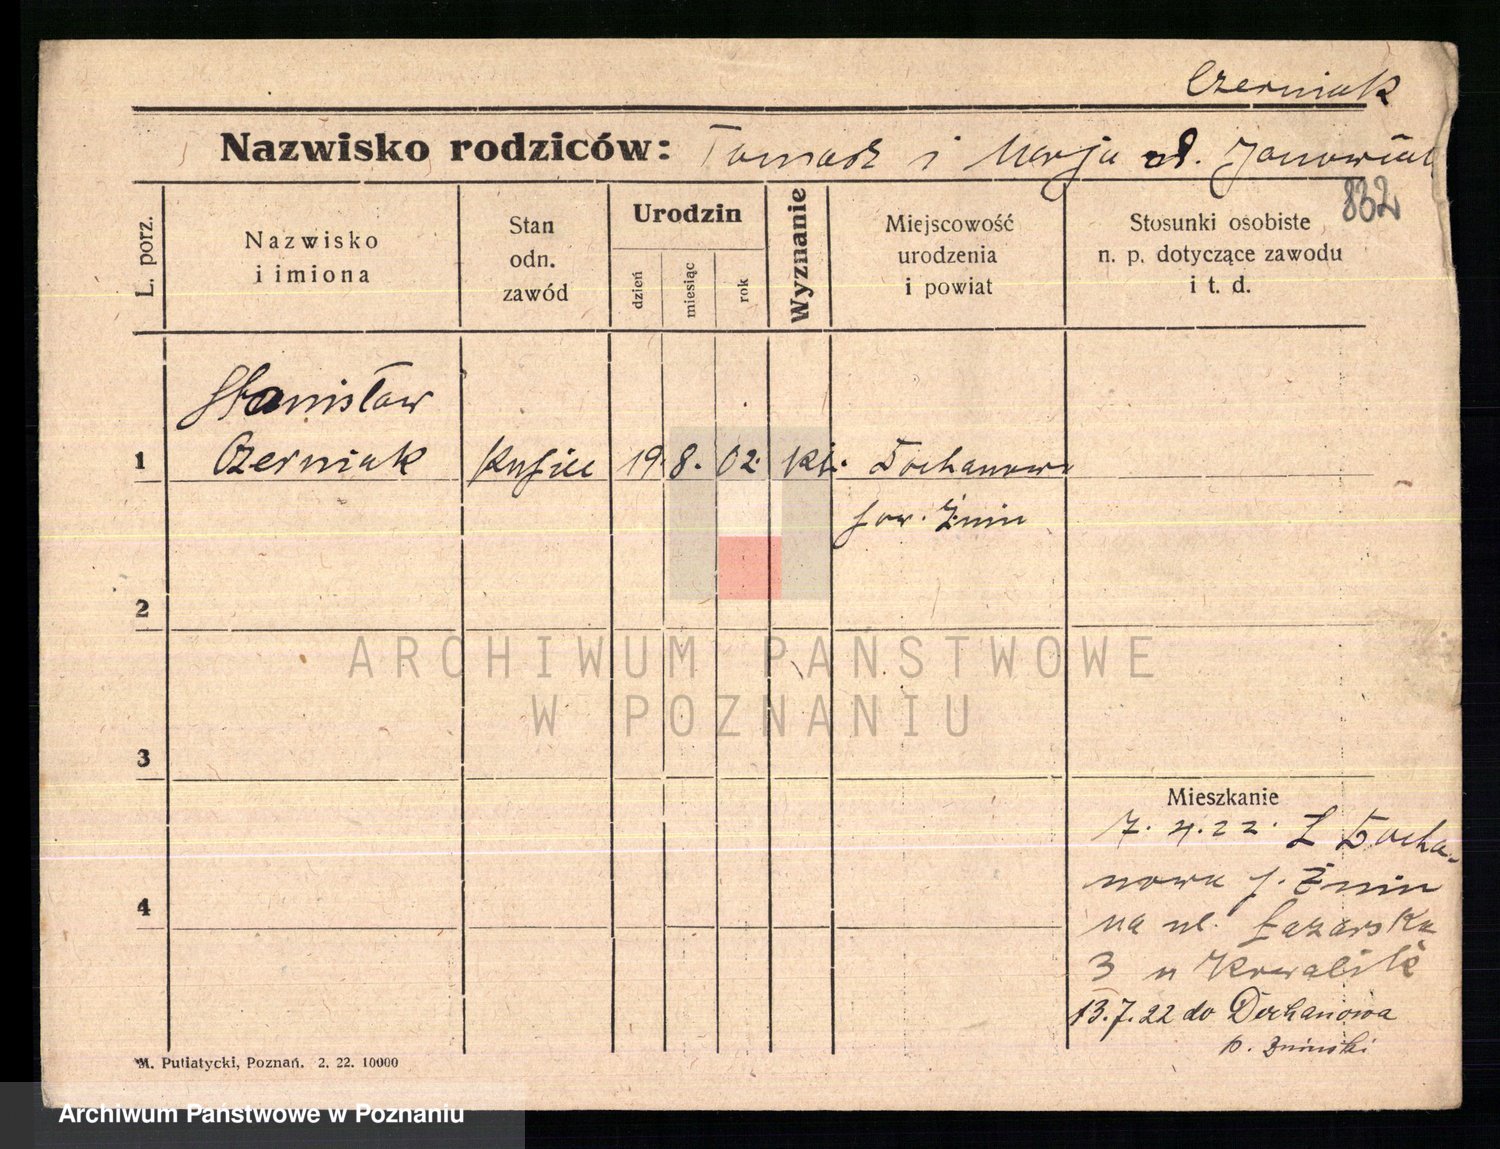 Czerniak
Nazwisko rodziców: Tomasz i Marja ud. Janowiak
832
L. porz.
Nazwisko
i imiona
Stan
odn.
zawód
Urodzin
dzień
miesiąc
rok
Wyznanie
Miejscowość
urodzenia
i powiat
Stosunki osobiste
n. p. dotyczące zawodu
i t. d.
Stanisław
1 Czerniak Kupiec 19. 8. 02. kt. Dochanowo
pow. Żnin
2
ARCHIWUM PAŃSTWOWE
W POZNANIU
3
Mieszkanie
7. 4. 22. Z Docha-
nowa p. Żnin
4
na ul. Łazarska
3 u Kowalik
13. 7. 22 do Dochanowa
p. Żniński
M. Putiatycki, Poznań. 2. 22. 10000
Archiwum Państwowe w Poznaniu